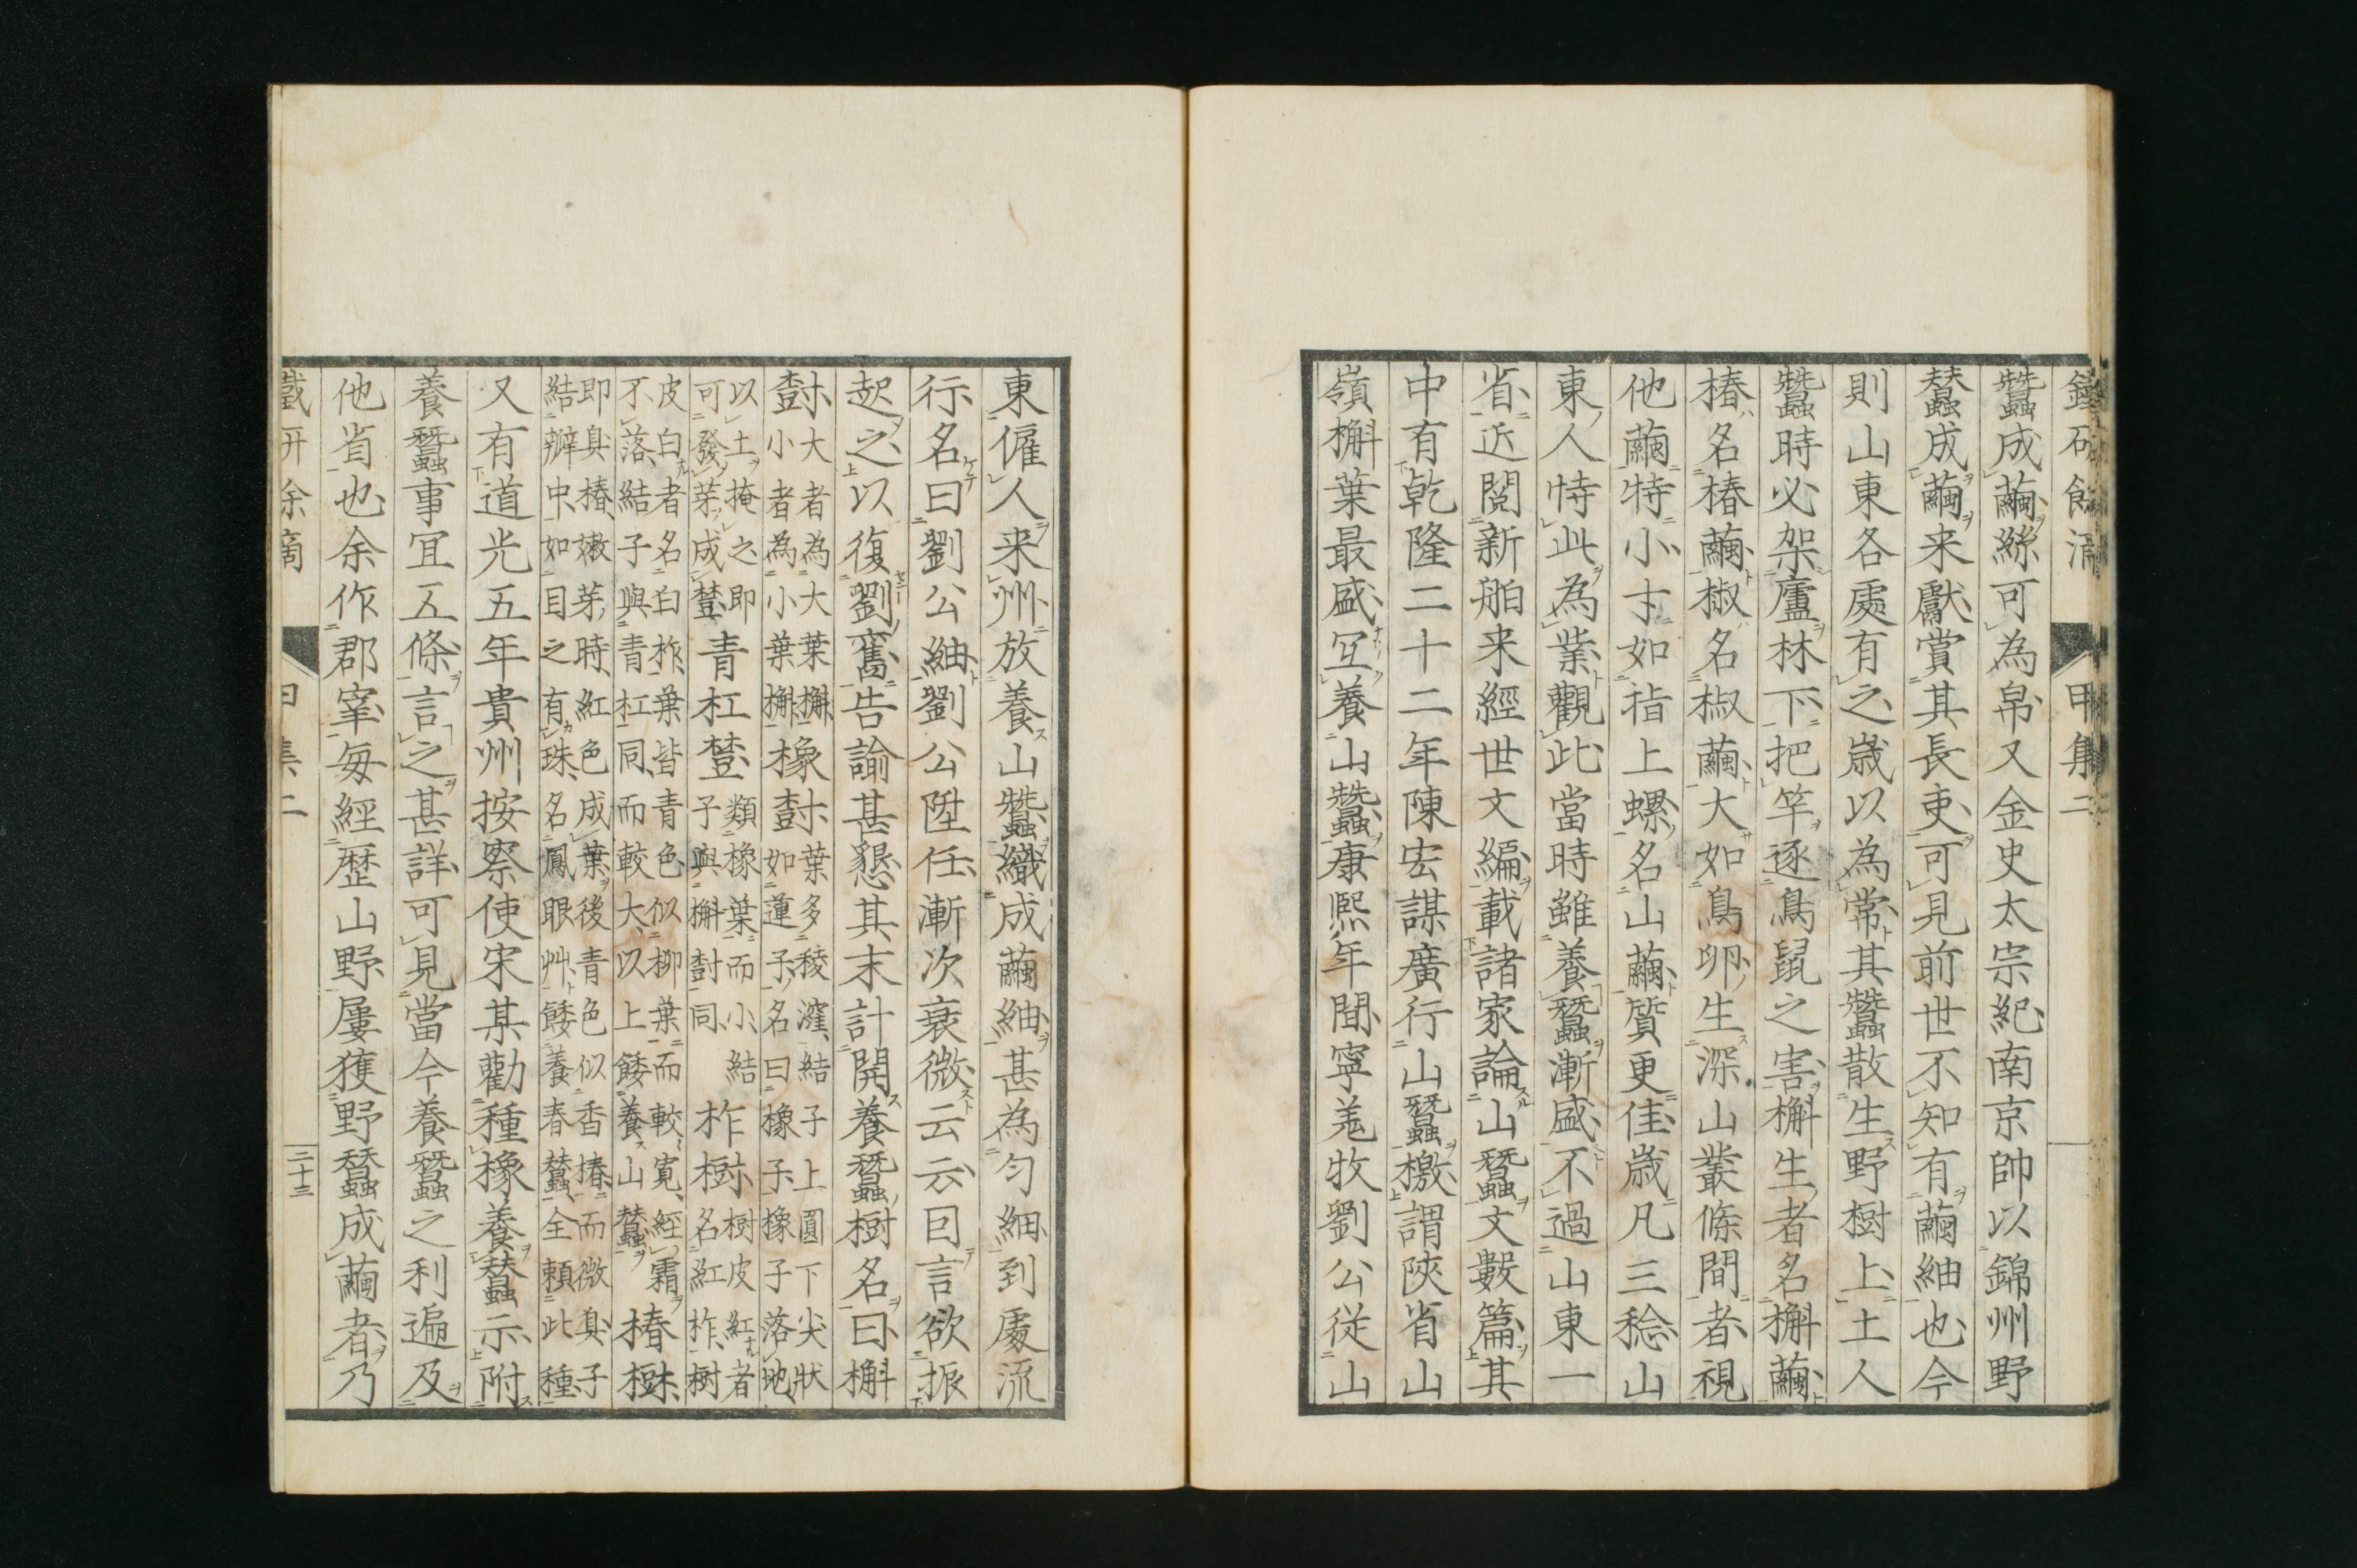 甲集二
蠶成繭絲可為帛又金史太宗紀南京帥以錦州野
蠶成繭来獻賞其長吏可見前世不知有繭紬也今
則山東各處有之歳以為常其蠶散生野樹上土人
蠶時必架廬林下把竿逐鳥鼠之害槲生者名槲繭
椿名椿繭椒名椒繭大如鳥卵生深山叢條間者視
他繭特小寸如指上螺名山繭質更佳歳凡三稔山
東人恃此為業觀此當時雖養蠶漸盛不過山東一
省近閲新舶来經世文編載諸家論山蠶文數篇其
中有乾隆二十二年陳宏謀廣行山蠶檄謂陝省山
嶺槲葉最盛冝養山蠶康熙年間寧羌牧劉公従山
東僱人来州放養山蠶織成繭紬甚為匀細到處流
行名曰劉公紬劉公陞任漸次衰微云云因言欲振
起之以復劉舊告諭甚懇其末計開養蠶樹名曰槲
樹大者為大葉槲小者為小葉槲橡樹葉多稜濯結子上圓下尖状如蓮子名曰橡子橡子落地
以土掩之即可發芽成𣛮青杠𣛮類橡葉而小結子與槲樹同柞樹樹皮紅者名紅柞樹
皮白者名白柞葉皆青色似柳葉而較寛經霜不落結子與青杠同而較大以上餧養山蠶椿樹
即臭椿嫩芽時紅色成葉後青色似香椿而微臭子結辧中如目之有珠名鳳眼艸餧養春蠶全頼此種
又有道光五年貴州按察使宋某勸種橡養蠶示附
養蠶事冝五條言之甚詳可見當今養蠶之利遍及
他省也余作郡宰毎經歴山野屢獲野蠶成繭者乃
甲集二
二十三